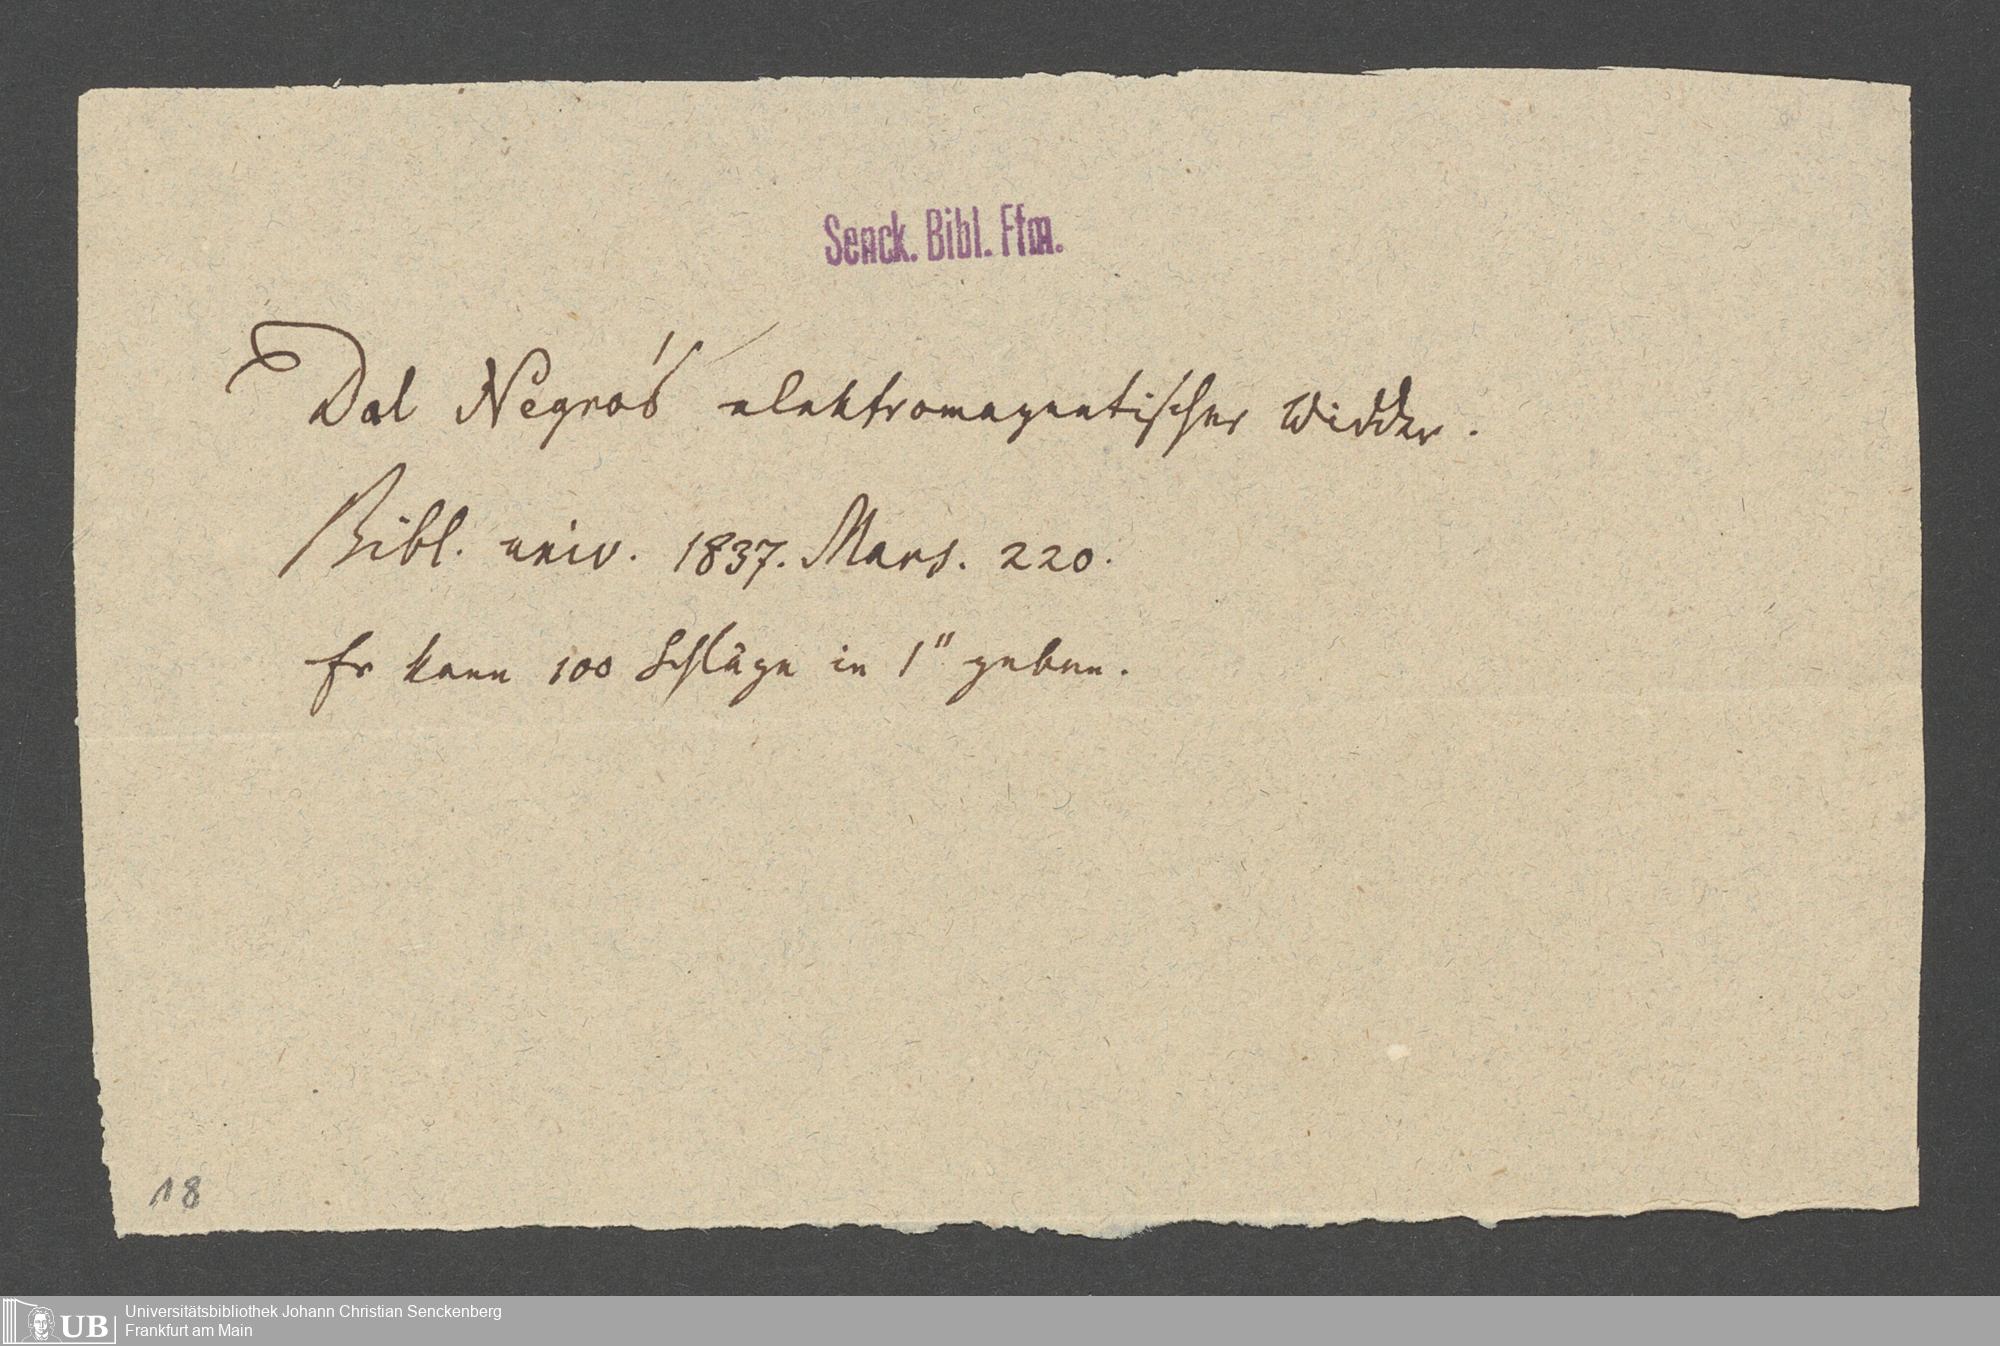 Senck. Bibl. Ffm.
Dal Negro's elektromagnetischer Widder.
Bibl. univ. 1837. Mars. 220.
Er kann 100 Schläge in 1" geben.
18
UB
Universitätsbibliothek Johann Christian Senckenberg
Frankfurt am Main